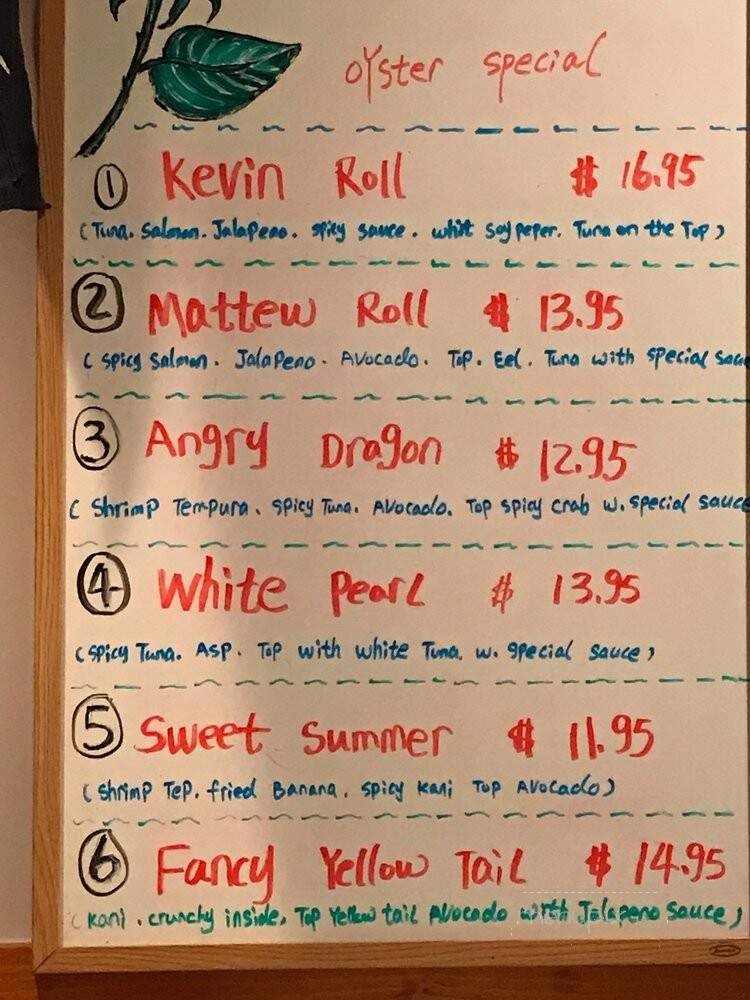 oyster special
① Kevin Roll $ 16.95
(Tuna. Salmon. Jalapeno. spicy sauce. whit soy peper. Tuna on the Top)
② Mattew Roll $ 13.95
(spicy salmon. Jalapeno. Avocado. Top. Eel. Tuna with special sau
③ Angry Dragon $ 12.95
(Shrimp Tempura. spicy Tuna. Avocado. Top spicy crab w. special sauce
④ White Pearl $ 13.95
(spicy Tuna. Asp. Top with white Tuna. w. special sauce)
⑤ Sweet Summer $ 11.95
(shrimp Tep. fried Banana. spicy kani Top Avocado)
⑥ Fancy Yellow Tail $ 14.95
(kani. crunchy inside. Top Yellow tail Avocado with Jalapeno sauce)